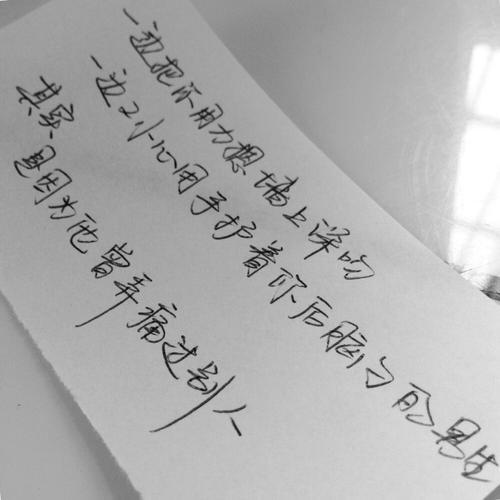 一边把你用力摁墙上深吻
一边又小心用手护着你后脑勺的男生
其实
是因为他曾弄痛过别人